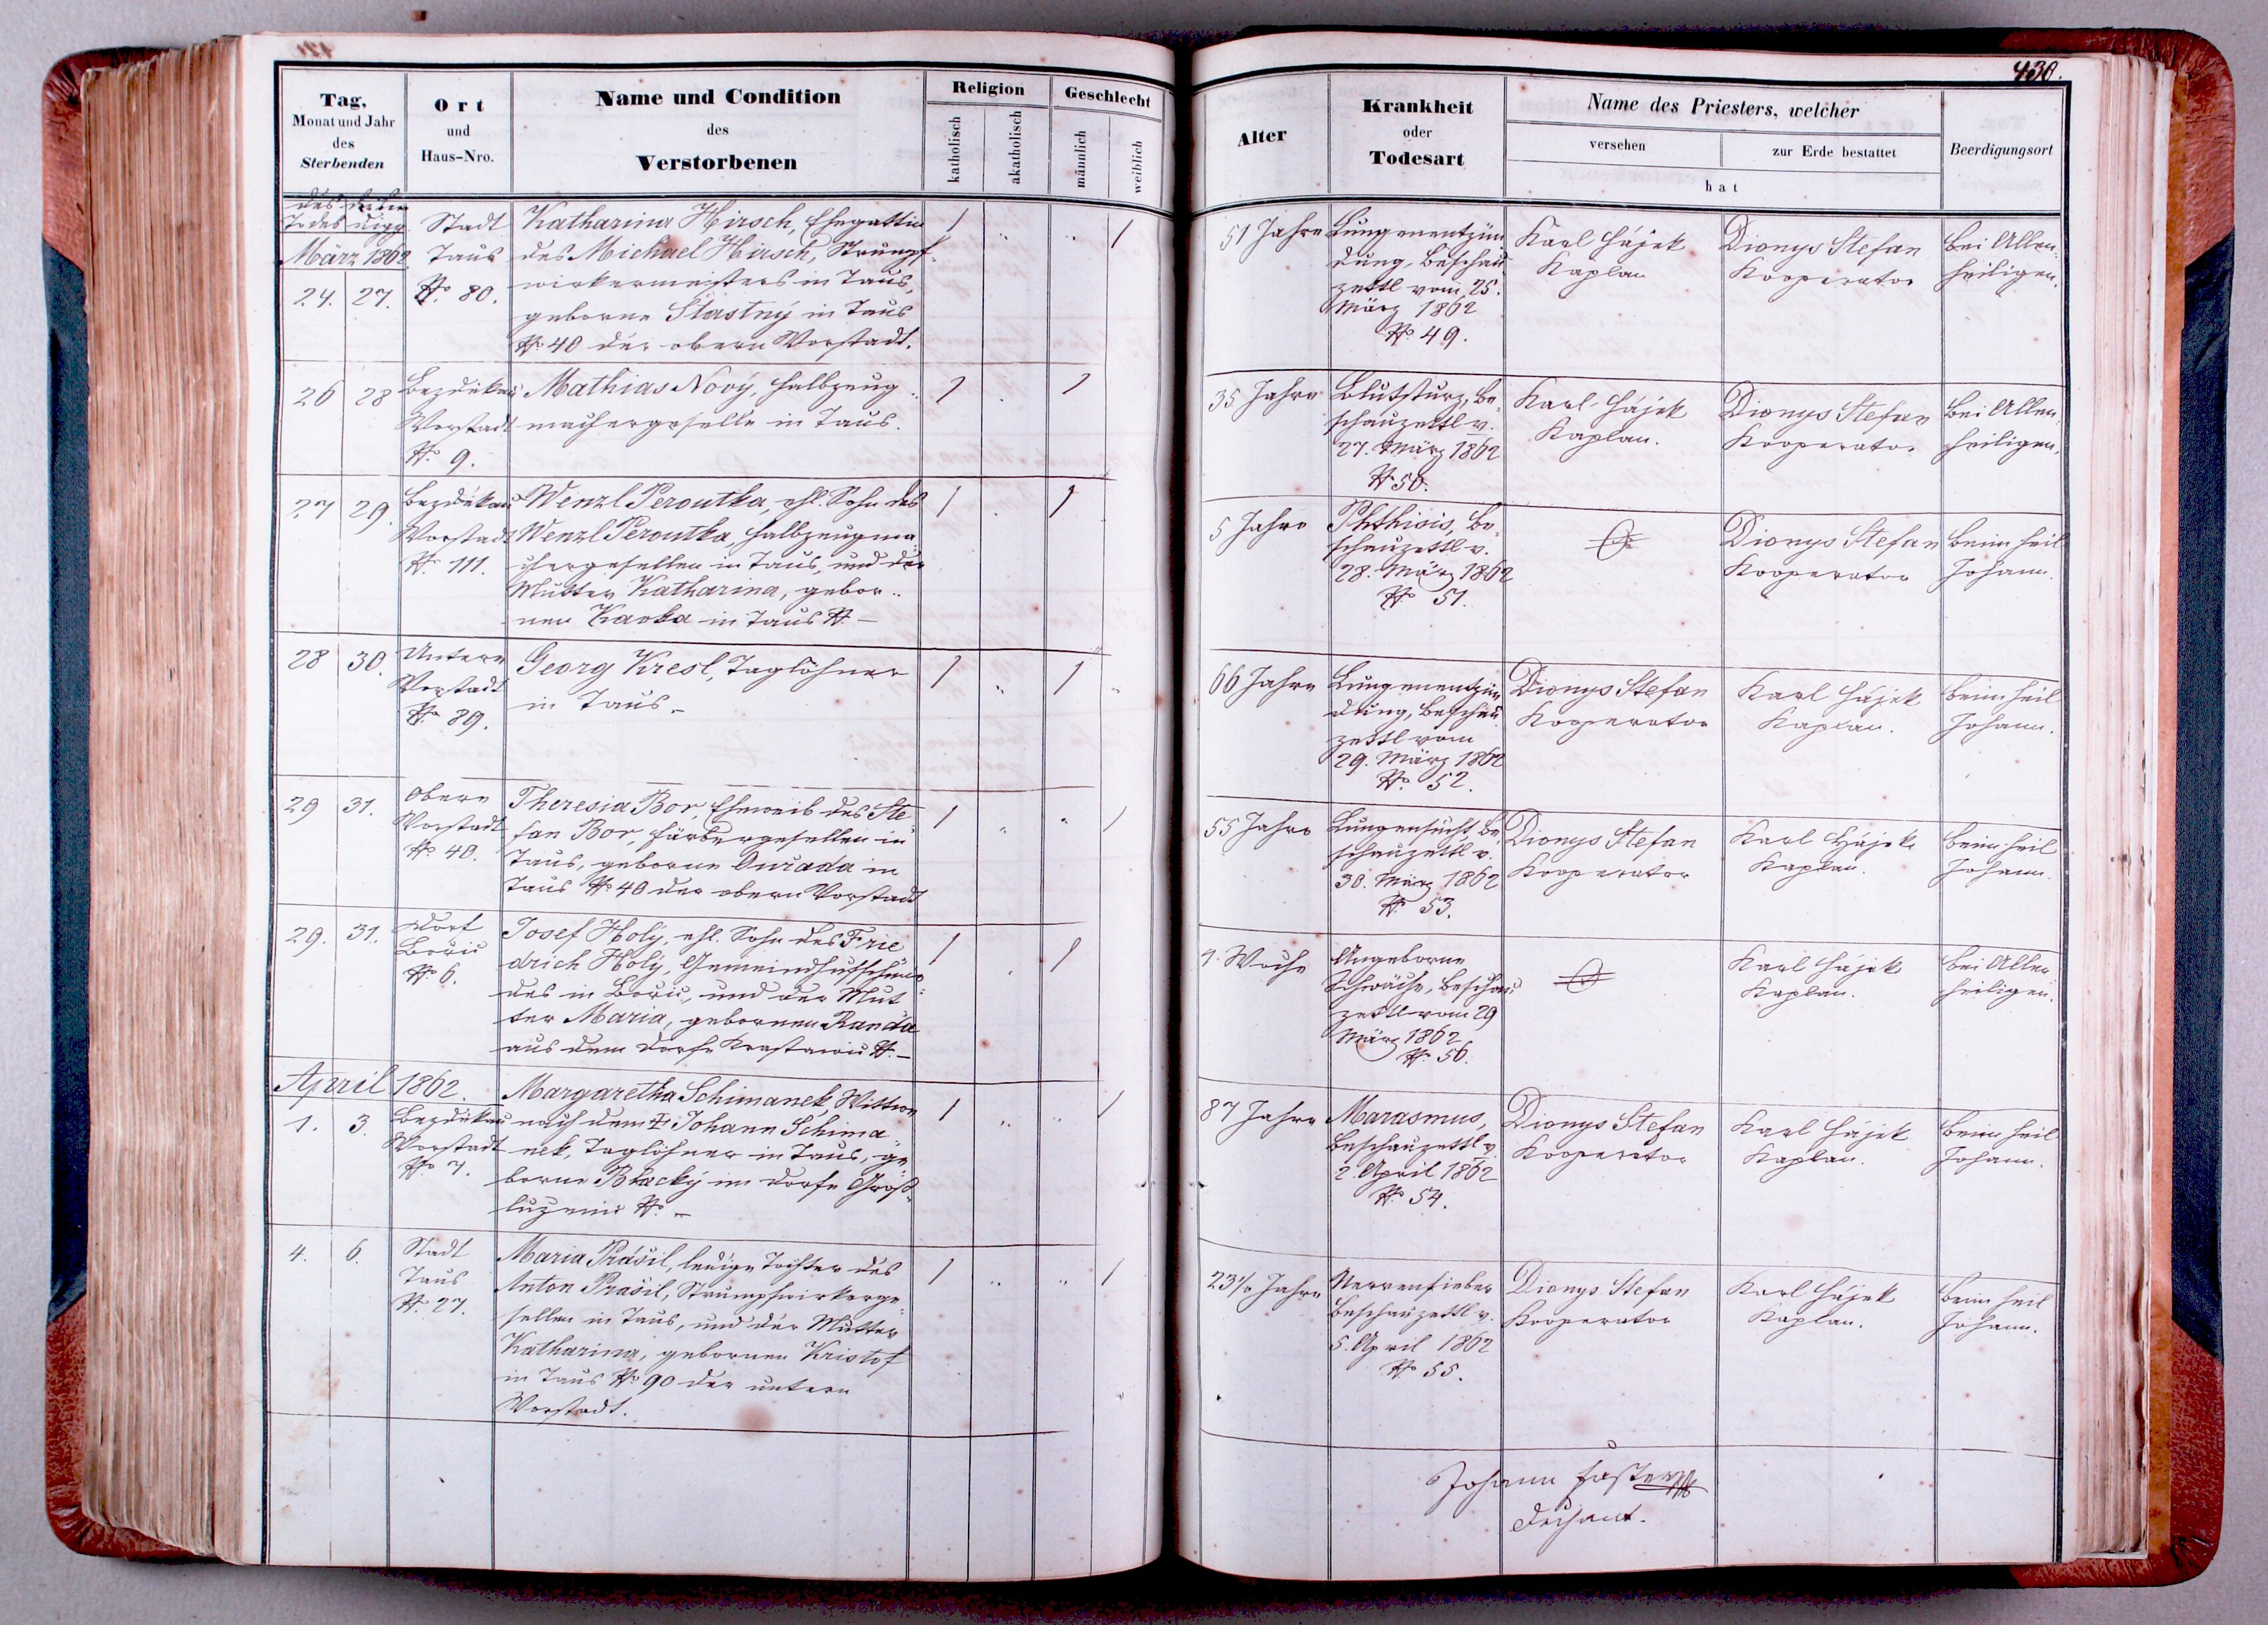 430.
Tag,
Monat und Jahr
des
Sterbenden
Ort
und
Haus-Nro.
Name und Condition
des
Verstorbenen
Religion
katholisch
akatholisch
Geschlecht
männlich
weiblich
Alter
Krankheit
oder
Todesart
Name des Priesters, welcher
versehen
zur Erde bestattet
hat
Beerdigungsort
des
Todes
März 1862
24. 27.
Stadt
Taus
No 80.
Katharina Hirsch, Ehegattin
des Michael Hirsch, Strumpf-
wirkermeisters in Taus,
geborne Štastný in Taus
No 40 der obern Vorstadt.
1 " " 1
51 Jahre
Lungenentzün
dung, Beschau
zettl vom 25.
März 1862
No 49.
Karl Hájek
Kaplan
Dionys Stefan
Kooperator
bei Allen-
heiligen.
26 28
Bezdiekau
Vorstadt
No 9.
Mathias Nový, Halbzeug-
machergeselle in Taus.
1 1
35 Jahre
Blutsturz, Be-
schauzettl v.
27. März 1862
No 50.
Karl Hájek
Kaplan.
Dionys Stefan
Kooperator
bei Allen-
heiligen.
27 29.
Bezdiekau
Vorstadt
No 111.
Wenzl Peroutka, ehl. Sohn des
Wenzl Peroutka, Halbzeugma-
chergesellen in Taus, und der
Mutter Katharina, gebor-
nen Kavka in Taus No —
1 1
5 Jahre
Phthisis, Be-
schauzettl v.
28. März 1862
No 51.
Dionys Stefan
Kooperator
beim heil
Johann.
28 30.
Untere
Vorstadt
No 89.
Georg Kresl, Taglöhner
in Taus.
1 " 1 "
66 Jahre
Lungenentzün
dung, Beschau
zettl vom
29. März 1862
No 52.
Dionys Stefan
Kooperator
Karl Hájek
Kaplan.
beim heil
Johann.
29 31.
Obere
Vorstadt
No 40.
Theresia Bor, Eheweib des Ste-
fan Bor, Färbergesellen in
Taus, geborne Ouřada in
Taus No 40 der obern Vorstadt
1 " " 1
55 Jahre
Lungensucht, Be-
schauzettl v.
30. März 1862
No 53.
Dionys Stefan
Kooperator
Karl Hájek
Kaplan.
beim heil
Johann.
29. 31.
Dorf
Bořic
No 6.
Josef Holý, ehl. Sohn des Frie
drich Holý, Gemeindhufschmie-
des in Bořic, und der Mut
ter Maria, gebornen Randa
aus dem Dorfe No —
1 1
1. Woche
Angeborne
Schwäche, Beschau-
zettl vom 29
März 1862
No 56.
Karl Hájek
Kaplan.
bei Allen
heiligen.
April 1862.
1. 3.
Bezdiekau
Vorstadt
No 7.
Margaretha Schimanek, Wittwe
nach dem † Johann Schima-
nek, Taglöhner in Taus, ge-
borne im Dorfe Groß-
No —
1 " " 1
87 Jahre
Marasmus,
Beschauzettl v.
2. April 1862
No 54.
Dionys Stefan
Kooperator
Karl Hájek
Kaplan.
beim heil
Johann.
4. 6.
Stadt
Taus
No 27.
Maria Prášil, ledige Tochter des
Anton Prášil, Strumpfwirkerge-
sellen in Taus, und der Mutter
Katharina, gebornen Kristof
in Taus No 90 der untern
Vorstadt.
1 " " 1
23½ Jahre
Nervenfieber
Beschauzettl v.
5. April 1862
No 55.
Dionys Stefan
Kooperator
Karl Hájek
Kaplan.
beim heil
Johann.
Johann Faster
Dechant.